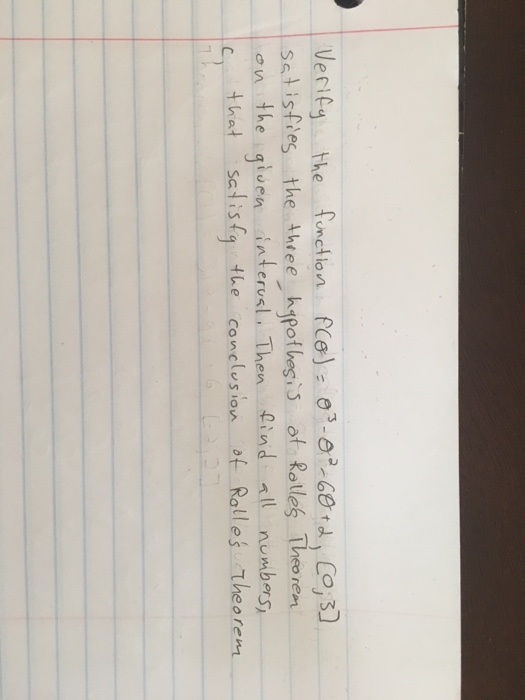 Verify the function f(θ) = θ³-θ²-6θ+2, [0,3]
satisfies the three hypothesis of Rolle's Theorem
on the given interval. Then find all numbers,
c, that satisfy the conclusion of Rolle's Theorem